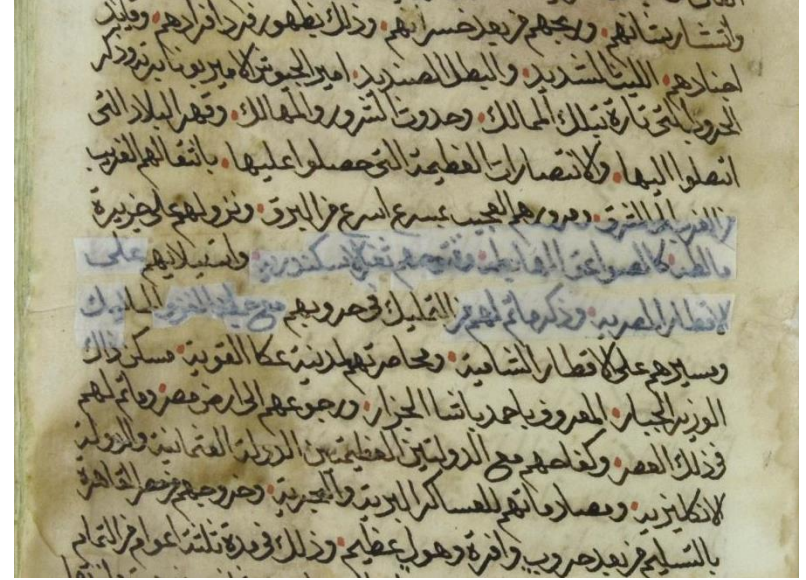 وانتشار بيتاتهم وربحهم من بعد خسرانهم وذلك بظهور فرد افرادهم وقايد
اجنادهم الليث الشديد والبطل الصنديد امير الجيوش الامير بونابرته وذكر
الحروب التي تارة بتلك الممالك وحدوث الشرور والمهالك وقهر البلاد التي
اتصلوا اليها والانتصارات العظيمة التي حصلوا عليها بانتقالهم الغريب
من الغرب الى الشرق ومرورهم العجيب بمسرع اسرع من البرق ونزولهم على جزيرة
مالطه كالصواعق الهابطه وفتوحهم ثغر الاسكندريه واستيلايهم على
الاقطار المصريه وذكر ما تم لهم من التمليك في حروبهم مع الغز المماليك
ومسيرهم على الاقطار الشامية ومحاصرتهم لمدينة عكا القوية مسكن ذاك
الوزير الجبار المعروف باحمد باشا الجزار ورجوعهم الى ارض مصر وما تم لهم
في ذلك العصر وكفاحهم مع الدولتين العظيمتين الدولة العثمانية والدولة
الانكليزيه ومصادماتهم للعساكر البرية والبحرية وخروجهم من مصر القاهرة
بالتسليم من بعد حروب وافرة وهول عظيم وذلك في مدة ثلثة اعوام من التمام